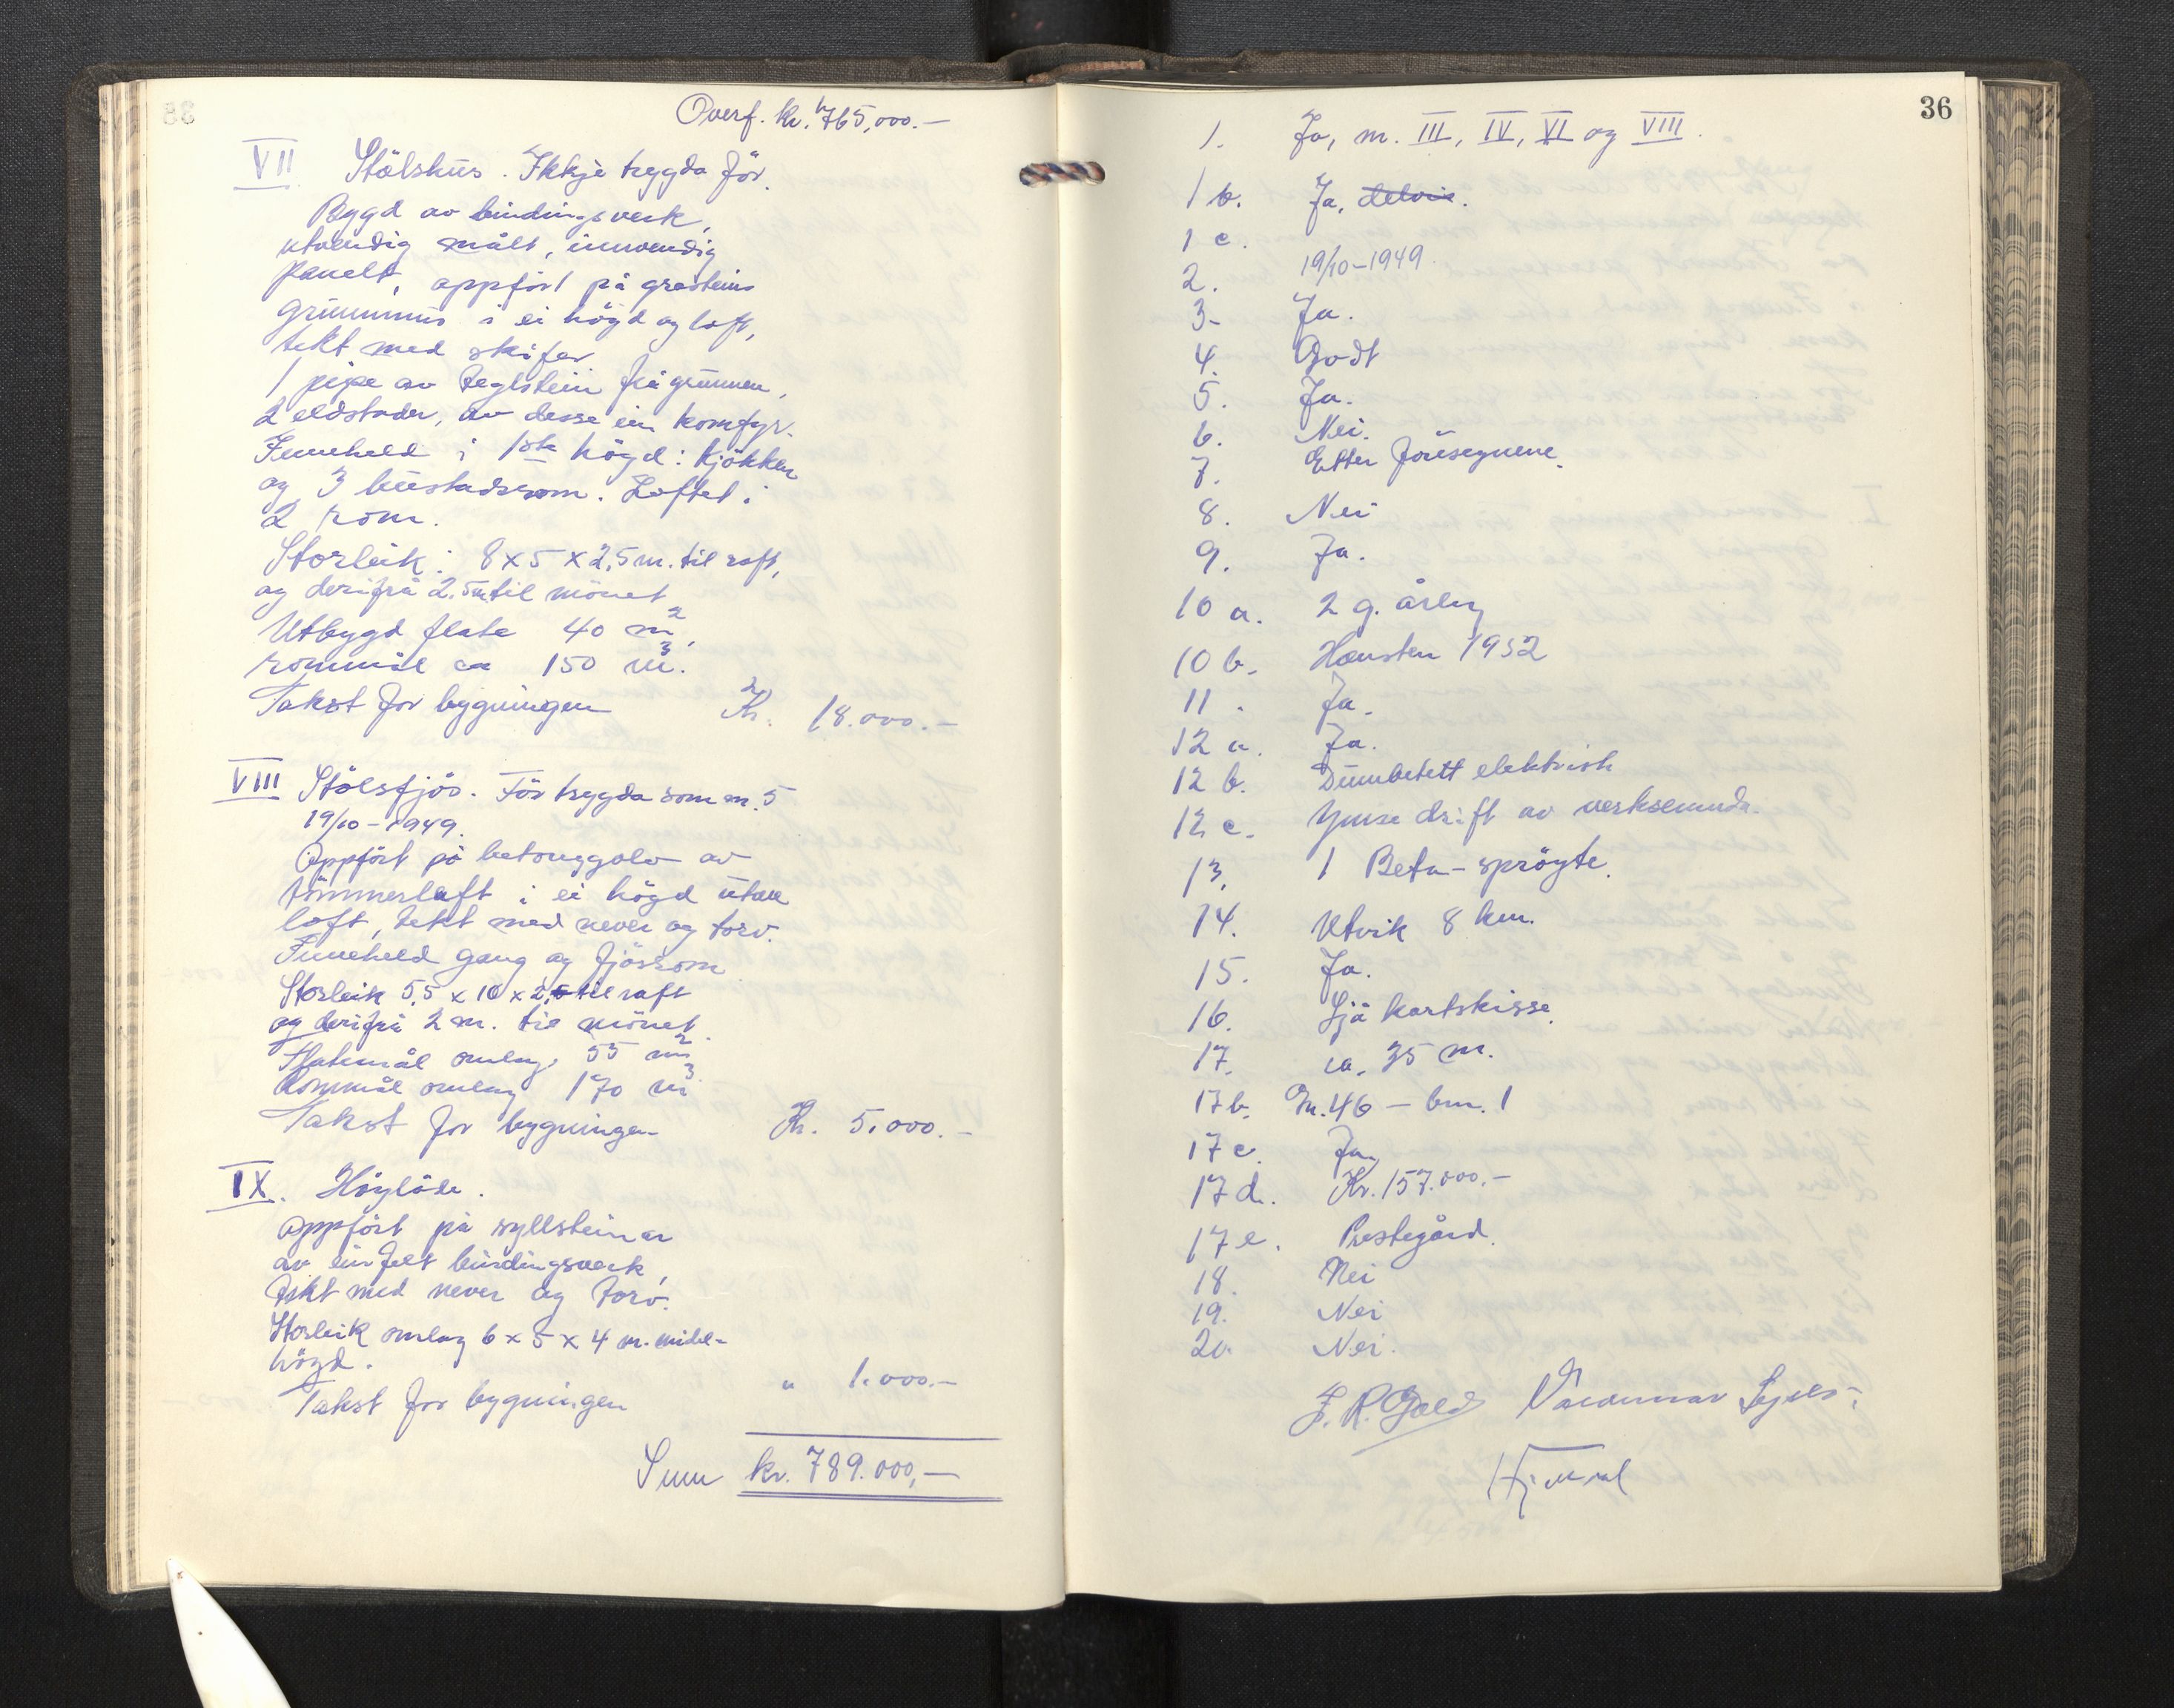 Overf. kr. 765,000.-
VII Stölshus. Ikkje trygda för.
Bygd av bindingsverk,
utvendig målt, innvendig
panelt, oppfört på gråsteins
grunnmur i ei högd og loft,
tekt med skifer
1 pipe av teglstein frå grunnen,
2 eldstader, av desse ein komfyr.
Inneheld i 1ste högd: kjökken
og 3 bustadsrom. Loftet i
2 rom.
Storleik: 8 x 5 x 2,5 m. til raft,
og derifrå 2.5 m til mönet
Utbygd flate 40 m2,
rommål ca 150 m3.
Takst for bygningen Kr. 18.000.-
VIII Stölsfjös. För trygda som nr. 5
19/10-1949.
Oppfört på betonggolv av
tömmerlaft i ei högd utan
loft, tekt med never og torv.
Inneheld gang og fjösrom
Storleik 5,5 x 10 x 2,5 til raft
og derifrå 2 m. til mönet.
Flatemål omlag 55 m2
Rommål omlag 170 m3
Takst for bygningen Kr. 5.000.-
IX. Höylöde.
Oppfört på syllsteinar
av einfelt bindingsverk,
tekt med never og torv.
Storleik omlag 6 x 5 x 4 m. midel-
högd.
Takst for bygningen " 1.000.-
Sum kr. 789.000,-
36
1. Ja, nr. III, IV, VI og VIII.
1 b. Ja, delvis.
1 c.
2. 19/10-1949.
3. Ja.
4. Godt
5. Ja.
6. Nei.
7. Etter föresegnene.
8. Nei
9. Ja.
10 a. 2 g. årleg
10 b. Hausten 1952
11. Ja.
12 a. Ja.
12 b. Dunbetett elektrisk
12 c. Ymse drift av verksemnda.
13. 1 Beta-spröyte.
14. Utvik 8 km.
15. Ja.
16. Sjå kartskisse.
17. ca. 35 m.
17 b. Gn. 46 - bnr. 1
17 c. Ja
17 d. Kr. 157.000.-
17 e. Prestegård.
18. Nei
19. Nei
20. Nei.
J. R. Gald Valdemar